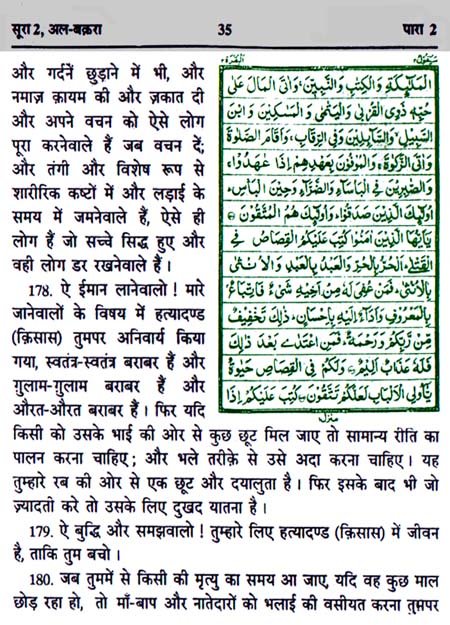 सूरा 2, अल-बक़रा
35
पारा 2
और गर्दनें छुड़ाने में भी, और
नमाज़ क़ायम की और ज़कात दी
और अपने वचन को ऐसे लोग
पूरा करनेवाले हैं जब वचन दें;
और तंगी और विशेष रूप से
शारीरिक कष्टों में और लड़ाई के
समय में जमनेवाले हैं, ऐसे ही
लोग हैं जो सच्चे सिद्ध हुए और
वही लोग डर रखनेवाले हैं ।
178. ऐ ईमान लानेवालो ! मारे
जानेवालों के विषय में हत्यादण्ड
(क़िसास) तुमपर अनिवार्य किया
गया, स्वतंत्र-स्वतंत्र बराबर हैं और
ग़ुलाम-ग़ुलाम बराबर हैं और
औरत-औरत बराबर हैं । फिर यदि
किसी को उसके भाई की ओर से कुछ छूट मिल जाए तो सामान्य रीति का
पालन करना चाहिए; और भले तरीक़े से उसे अदा करना चाहिए । यह
तुम्हारे रब की ओर से एक छूट और दयालुता है । फिर इसके बाद भी जो
ज़्यादती करे तो उसके लिए दुखद यातना है ।
179. ऐ बुद्धि और समझवालो ! तुम्हारे लिए हत्यादण्ड (क़िसास) में जीवन
है, ताकि तुम बचो ।
180. जब तुममें से किसी की मृत्यु का समय आ जाए, यदि वह कुछ माल
छोड़ रहा हो, तो माँ-बाप और नातेदारों को भलाई की वसीयत करना तुमपर
سيقول ٢
البقرة ٢
الْمَلٰٓئِكَةِ وَالْكِتٰبِ وَالنَّبِيّٖنَ ۚ وَاٰتَى الْمَالَ عَلٰى
حُبِّهٖ ذَوِى الْقُرْبٰى وَالْيَتٰمٰى وَالْمَسٰكِيْنَ وَابْنَ
السَّبِيْلِ ۙ وَالسَّآئِلِيْنَ وَفِى الرِّقَابِ ۚ وَاَقَامَ الصَّلٰوةَ
وَاٰتَى الزَّكٰوةَ ۚ وَالْمُوْفُوْنَ بِعَهْدِهِمْ اِذَا عٰهَدُوْا ۚ
وَالصّٰبِرِيْنَ فِى الْبَاْسَآءِ وَالضَّرَّآءِ وَحِيْنَ الْبَاْسِ ؕ
اُولٰٓئِكَ الَّذِيْنَ صَدَقُوْا ؕ وَاُولٰٓئِكَ هُمُ الْمُتَّقُوْنَ ۝
يٰٓاَيُّهَا الَّذِيْنَ اٰمَنُوْا كُتِبَ عَلَيْكُمُ الْقِصَاصُ فِى
الْقَتْلٰى ؕ اَلْحُرُّ بِالْحُرِّ وَالْعَبْدُ بِالْعَبْدِ وَالْاُنْثٰى
بِالْاُنْثٰى ؕ فَمَنْ عُفِىَ لَهٗ مِنْ اَخِيْهِ شَىْءٌ فَاتِّبَاعٌۢ
بِالْمَعْرُوْفِ وَاَدَآءٌ اِلَيْهِ بِاِحْسَانٍ ؕ ذٰلِكَ تَخْفِيْفٌ
مِّنْ رَّبِّكُمْ وَرَحْمَةٌ ؕ فَمَنِ اعْتَدٰى بَعْدَ ذٰلِكَ
فَلَهٗ عَذَابٌ اَلِيْمٌ ۝ وَلَكُمْ فِى الْقِصَاصِ حَيٰوةٌ
يّٰٓاُولِى الْاَلْبَابِ لَعَلَّكُمْ تَتَّقُوْنَ ۝ كُتِبَ عَلَيْكُمْ اِذَا
منزل